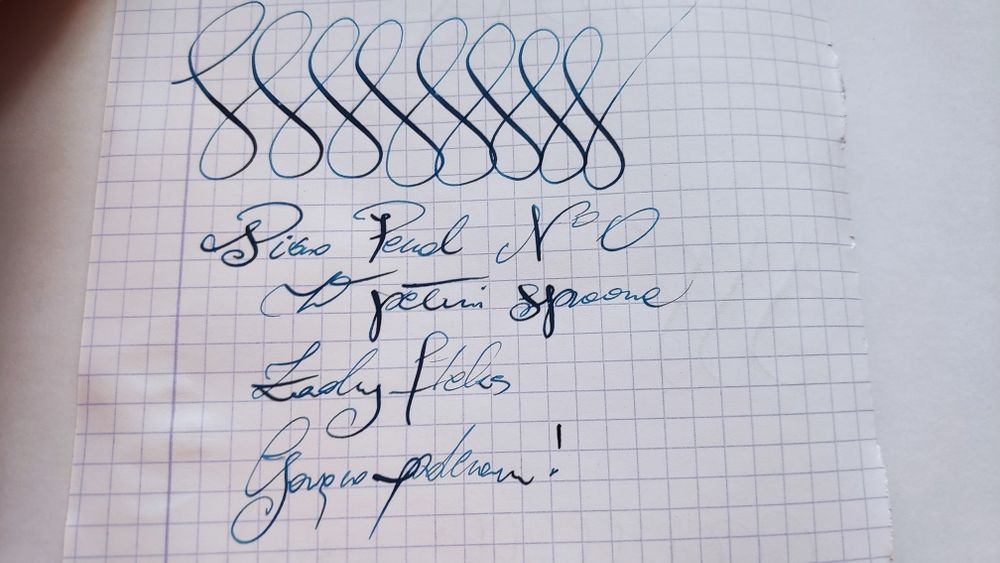 Pióro Penol Nº 0
W pełni sprawne
Ładny fleks
Gorąco polecam!